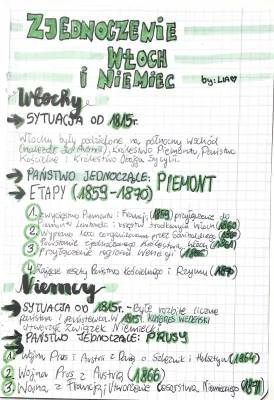 ZJEDNOCZENIE
WŁOCH
I NIEMIEC
by: LIA♡
Włochy
→ SYTUACJA OD 1815r.
Włochy były podzielone na północny wschód
Królestwo Piemontu, Państwo
Kościelne i Królestwo Obojga Sycylii.
→ PAŃSTWO JEDNOCZĄCE: PIEMONT
→ ETAPY (1859-1870)
1 zwycięstwo Piemontu i Francji (1859) przyłączenie do
Piemontu Lombardii i księstw środkowych Włoch (1860)
2 Wyprawa zorganizowana przez Garibaldiego (1860)
3 Powstanie zjednoczonego Królestwa Włoch (1861)
3 Przyłączenie regionu Wenecji (1866)
4 Zajęcie reszty Państwa Kościelnego i Rzymu (1870)
Niemcy
→ SYTUACJA OD 1815r. - Było rozbite liczne
państwa i państewka. W 1815r. KONGRES WIEDEŃSKI
utworzył Związek Niemiecki
→ PAŃSTWO JEDNOCZĄCE: PRUSY
1 Wojna Prus i Austrii z Danią o Szlezwik i Holsztyn (1864)
2 Wojna Prus z Austrią (1866)
3 Wojna z Francją i Utworzenie Cesarstwa Niemieckiego (1871)